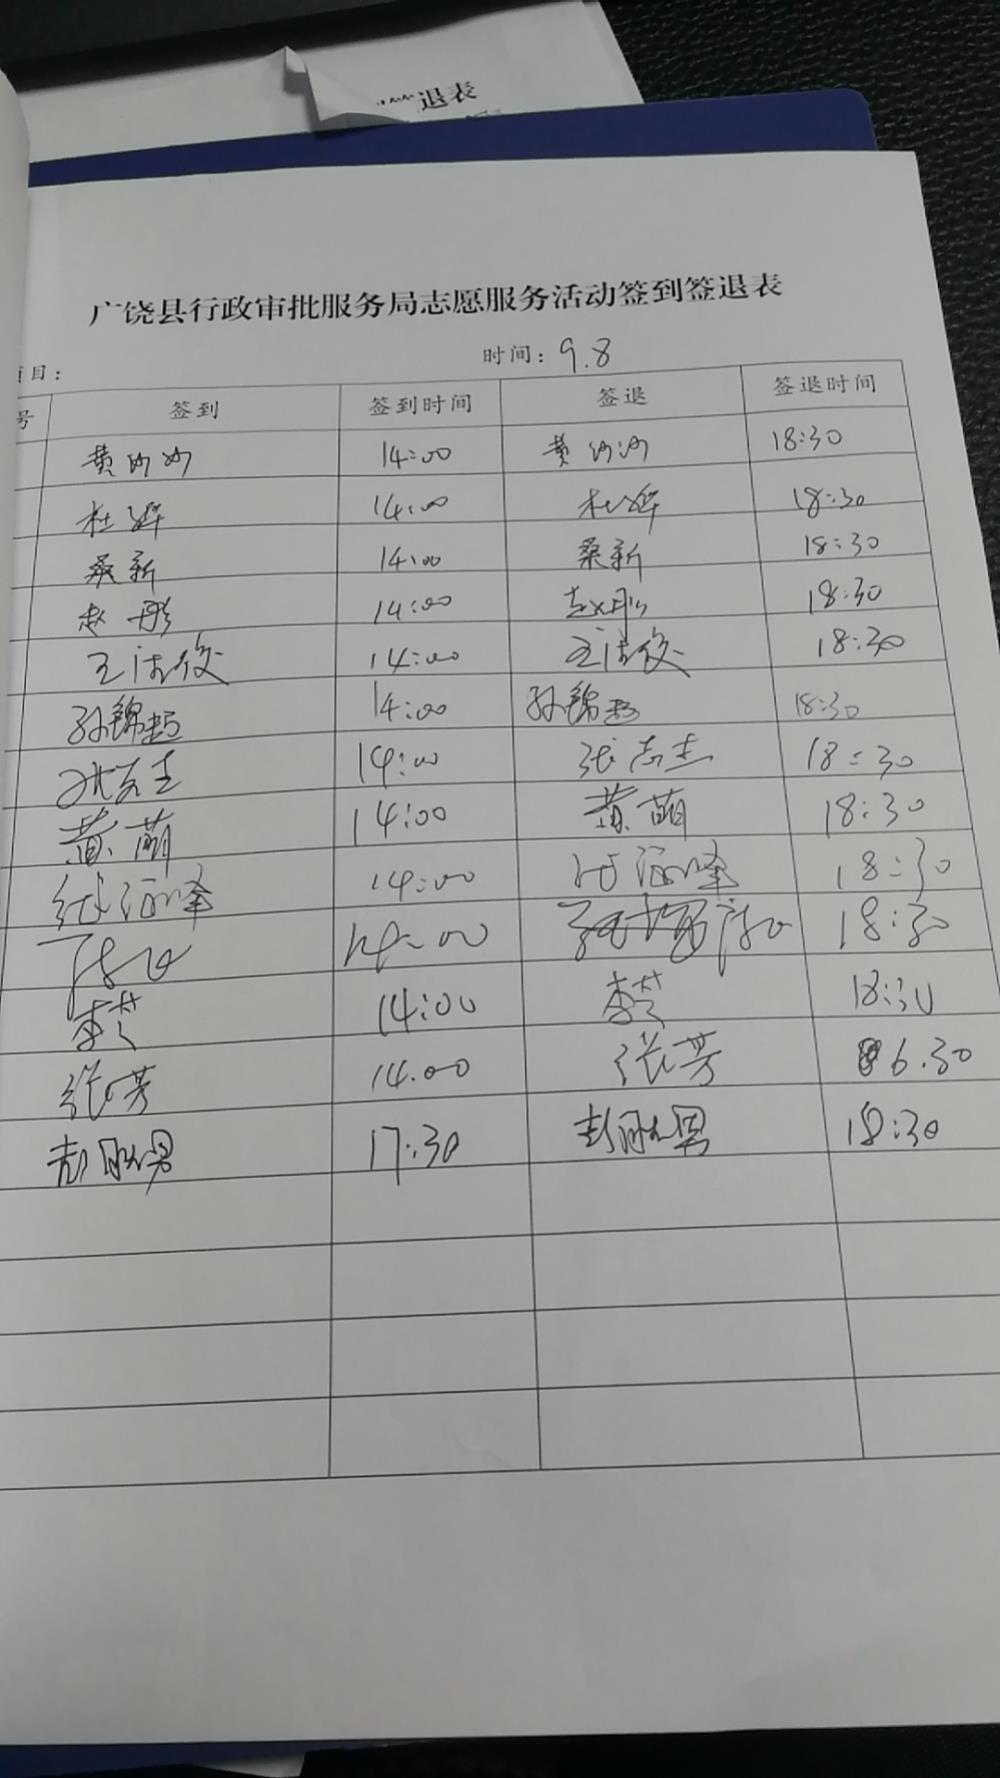 退表
广饶县行政审批服务局志愿服务活动签到签退表
项目： 时间：9.8
号 签到 签到时间 签退 签退时间
黄沙沙 14:00 黄沙沙 18:30
杜婷 14:00 杜婷 18:30
桑新 14:00 桑新 18:30
赵彤 14:00 赵彤 18:30
王洁俊 14:00 王洁俊 18:30
孙锦超 14:00 孙锦超 18:30
张志杰 14:00 张志杰 18:30
黄萌 14:00 黄萌 18:30
张海峰 14:00 张海峰 18:30
14:00 18:30
李兰 14:00 李兰 18:30
张芳 14.00 张芳 6.30
彭胜男 17:30 彭胜男 18:30